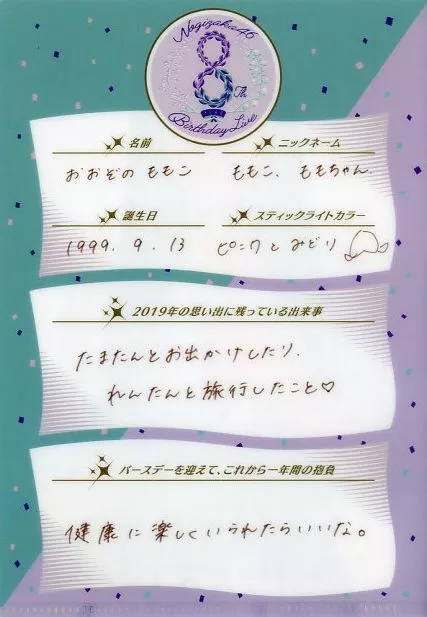 Nogizaka46
8
Th
Birthday Live
名前
ニックネーム
おおぞの ももこ
ももこ、ももちゃん。
誕生日
スティックライトカラー
1999. 9. 13
ピンクとみどり
2019年の思い出に残っている出来事
たまたんとお出かけしたり、
れんたんと旅行したこと♡
バースデーを迎えて、これから一年間の抱負
健康に楽しくいられたらいいな。